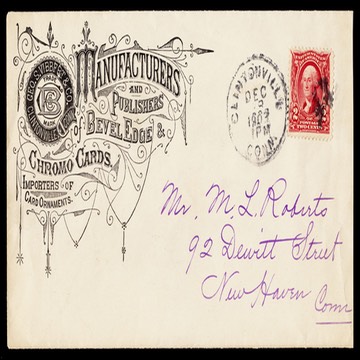 GEO. S. LIBBEY & CO.
TRADE
MARK
CLINTONVILLE CONN.
MANUFACTURERS
AND
PUBLISHERS
OF BEVEL EDGE &
CHROMO CARDS.
IMPORTERS OF
CARD ORNAMENTS.
CLINTONVILLE
DEC
3
1PM
CONN.
2 2
POSTAGE
TWO CENTS
Mr. M. L. Roberts
92 Dewitt Street
New Haven Conn